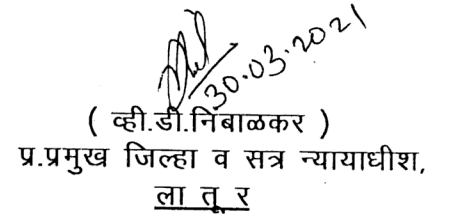 30.03.2021
( व्ही.डी.निंबाळकर )
प्र.प्रमुख जिल्हा व सत्र न्यायाधीश,
ला तू र